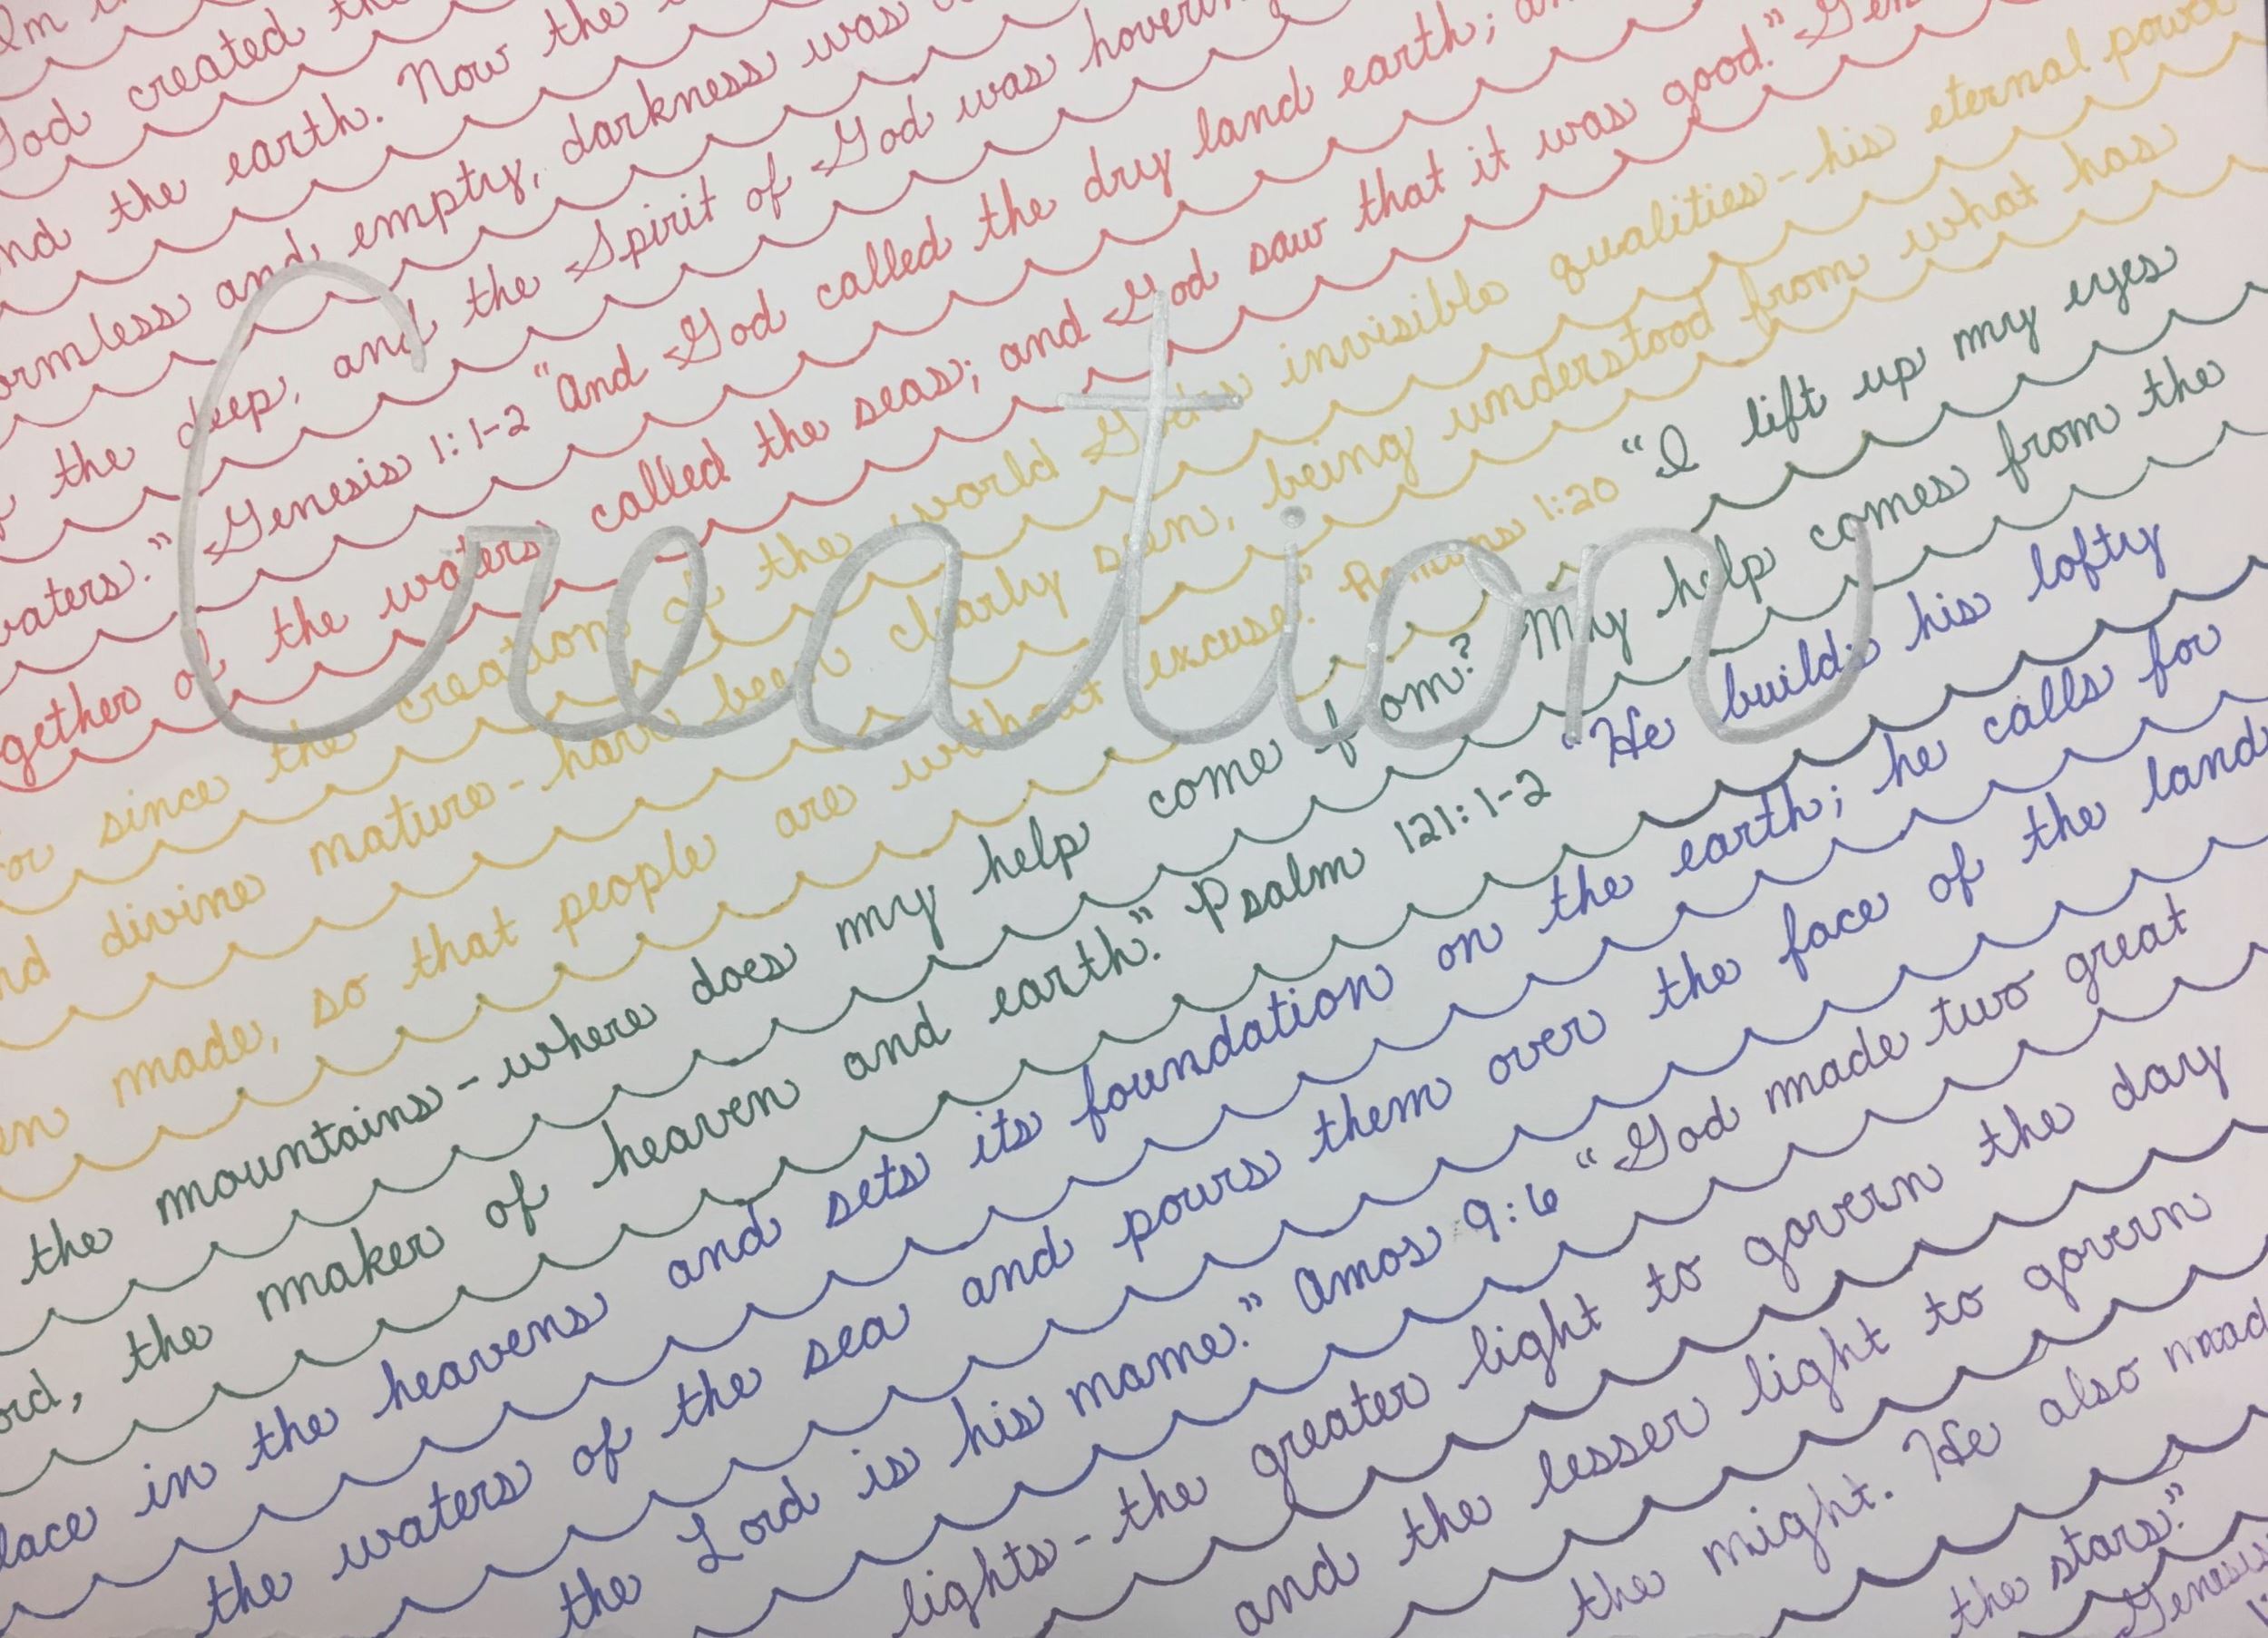 God created the
the earth. Now the
and empty, darkness was
the deep, and the Spirit of God was
waters." Genesis 1:1-2 "And God called the dry land earth;
of the waters called the seas; and God saw that it was good."
since the creation of the world God's invisible qualities-his eternal power
divine nature-have been clearly seen, being understood from what has
made, so that people are without excuse." Romans 1:20 "I lift up my eyes
the mountains-where does my help come from? My help comes from the
the maker of heaven and earth." Psalm 121:1-2 "He builds his lofty
in the heavens and sets its foundation on the earth; he calls for
the waters of the sea and pours them over the face of the land
the Lord is his name." Amos 9:6 "God made two great
lights-the greater light to govern the day
and the lesser light to govern
the night. He also
the stars."
Genesis
Creation